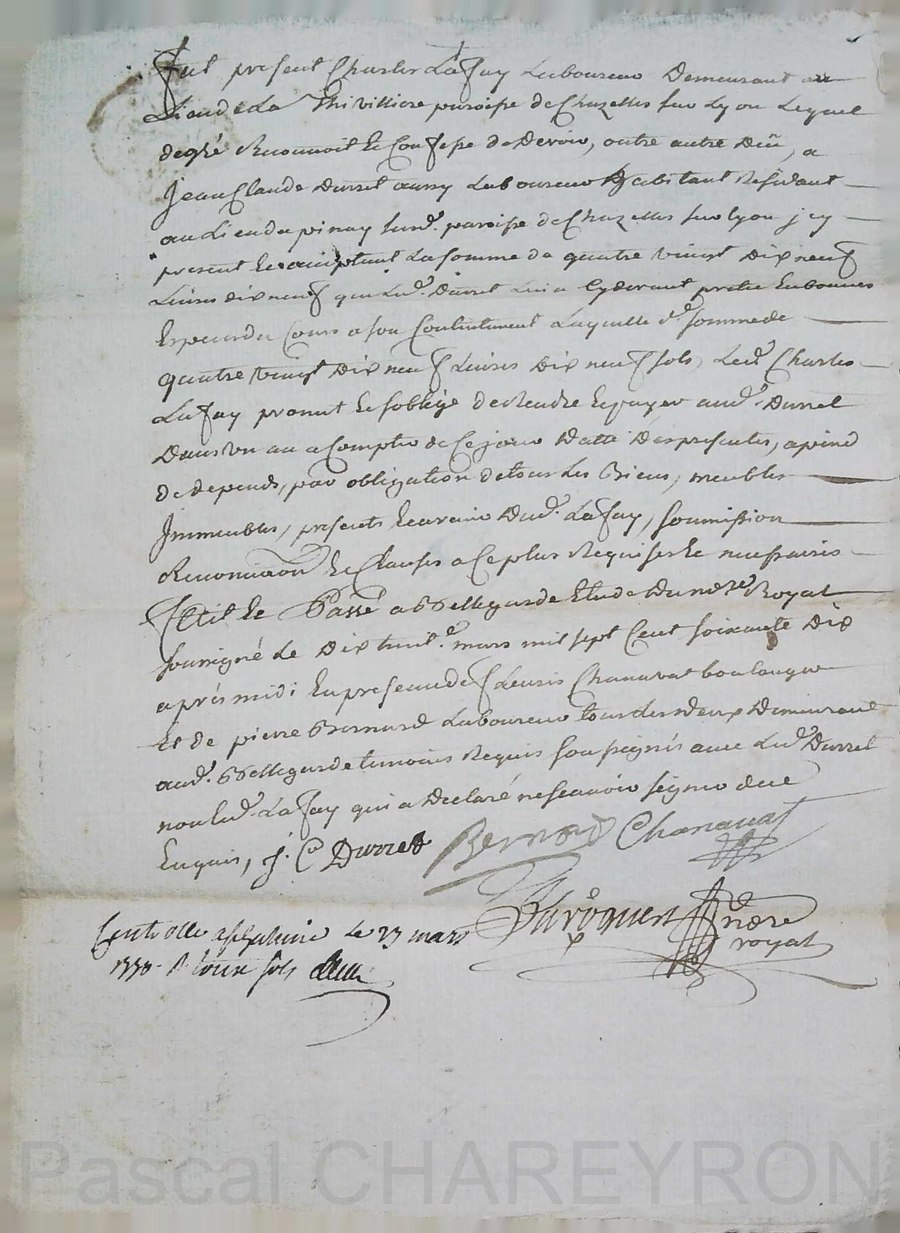 Fut present Charles Lafay Laboureur Demeurant au
Lieu de La Thivilliere paroisse de Chazelles sur Lyon Lequel
de gré Reconnoit Et Confesse de Devoir, outre autre Deu, a
Jean Claude Durret aussy Laboureur habitant Residant
au Lieu du pinay susd. paroisse de Chazelles sur lyon icy
present Et acceptant La somme de quatre vingt Dix neuf
Livres dix neuf que Lud. Durret Lui a cydevant pretée En bonnes
Especes du Cours a son Contentement Laquelle d.e somme de
quatre vingt Dix neuf Livres Dix neuf sols, Led. Charles
Lafay promet Et s'oblige de Rendre Et payer aud. Durret
Dans Un an a Compter de Ce jour Datte Des presentes, a peine
de depends, par obligation de tous Les Biens, meubles
Immeubles, presents Et avenir Dud. Lafay, soumission
Renonciaon Et Clauses a Ce plus Requises Et necessaires
Fait Et Passé a Bellegarde Etude Du nore Royal
soussigné Le Dix huit.e mars mil sept Cent soixante Dix
aprés midi En presence de Fleuris Chanavat boulanger
Et de pierre Bernard Laboureur tous Les Deux Demeurant
aud. Bellegarde temoins Requis soussignés avec Lud. Durret
non Lud. Lafay qui a Declaré ne scavoir signer de ce
Enquis, J. C Durret Bernard Chanavat
nore
royal
Controlle Le 23 mars
1770. R sols
Pascal CHAREYRON